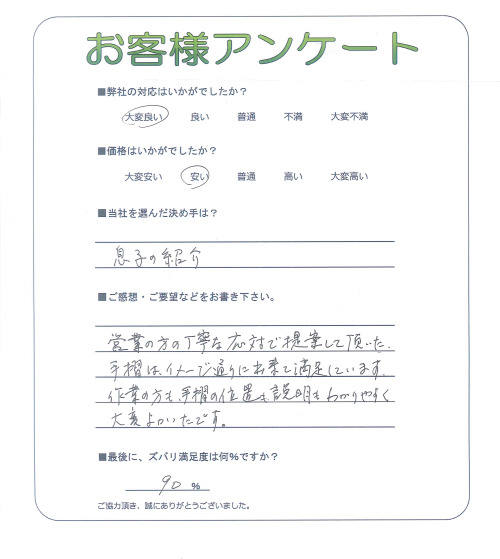 お客様アンケート
■弊社の対応はいかがでしたか？
大変良い 良い 普通 不満 大変不満
■価格はいかがでしたか？
大変安い 安い 普通 高い 大変高い
■当社を選んだ決め手は？
息子の紹介
■ご感想・ご要望などをお書き下さい。
営業の方の丁寧な応対で提案して頂いた。
手摺は、イメージ通りに出来て満足しています。
作業の方も、手摺の位置も説明もわかりやすく
大変よかったです。
■最後に、ズバリ満足度は何％ですか？
90 %
ご協力頂き、誠にありがとうございました。